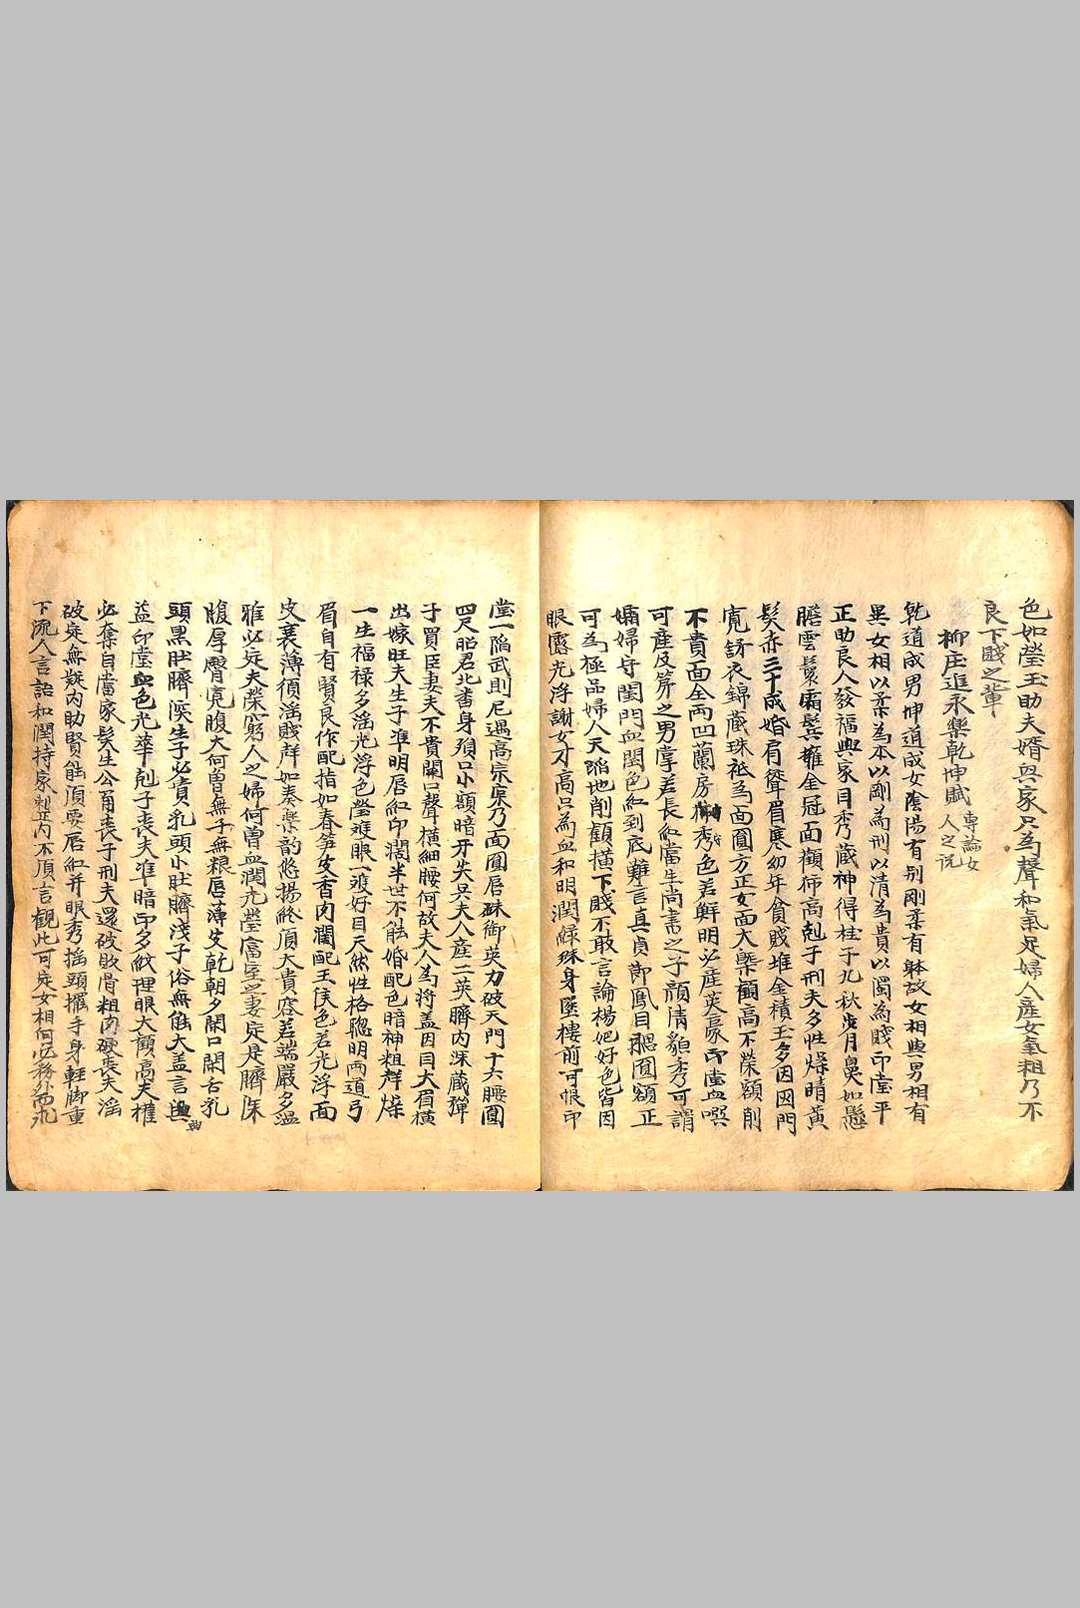 色如瑩玉助夫婿興家只為聲和氣足婦人產女氣粗乃不
良下賤之輩
柳庄進永樂乾坤賦
專論女
人之說
乾道成男坤道成女陰陽有别剛柔有躰故女相與男相有
異女相以柔為本以剛為刑以清為貴以濁為賤印堂平
正助良人發福興家目秀藏神得桂子九秋步月鼻如懸
膽雲鬟霧鬢擁金冠面觀 高尅子刑夫多性燥睛黃
髮赤三十成婚肩聳眉寒幼年貧賤堆金積玉多因因門
寬舒衣錦藏珠祗為面圓方正女面大槩顴高不榮額削
不貴面全兩凹蘭房 秀色若鮮明必產英豪印堂血噀
可產及第之男 若長紅當生尚書之子顏清貌秀可謂
孀婦守閨門血閏色紅到底難言真貞 鳳目腮圓額正
可為極品婦人天 地削顴橫下賤不敢言論楊妃好色皆因
眼露光浮謝女才高只為血和明潤綠珠身墜樓前可恨印
堂一陷武則尼遇高宗 乃面圓唇硃御英力破天門十六腰圓
四尺昭君北番身 口小顴暗开失兵夫人產二英臍内深藏彈
子買臣妻夫不貴闊口聲橫細腰何故夫人為將盖因目大眉橫
出嫁旺夫生子准明唇紅印濶半世不能婚配色暗神粗声燥
一生福禄多滛光浮色瑩雙眼一双好目天然性格聰明兩道弓
眉自有賢良作配指如春笋皮香肉潤配王侯色若光浮面
皮裹薄須滛賤声如奏樂韵悠揚終須大貴容若端嚴多溫
雅必定夫榮窮人之婦何曾血潤光瑩富室之妻定是臍深
腹厚臀寬腹大何曾無子無粮唇薄皮乾朝夕閑口閑舌乳
頭黑肚臍深生子必貴乳頭小肚臍淺子俗無能大盖言與
益印堂血色光華尅子喪夫准暗印多紋理眼大顴高夫權
必奪自當家髮生公角喪子刑夫還破敗骨粗肉硬喪夫滛
破定無疑内助賢能須要唇紅并眼秀摇頭擺手身軽脚重
下流人言語和潤持家 正内不須言觀此可定女相何必務外